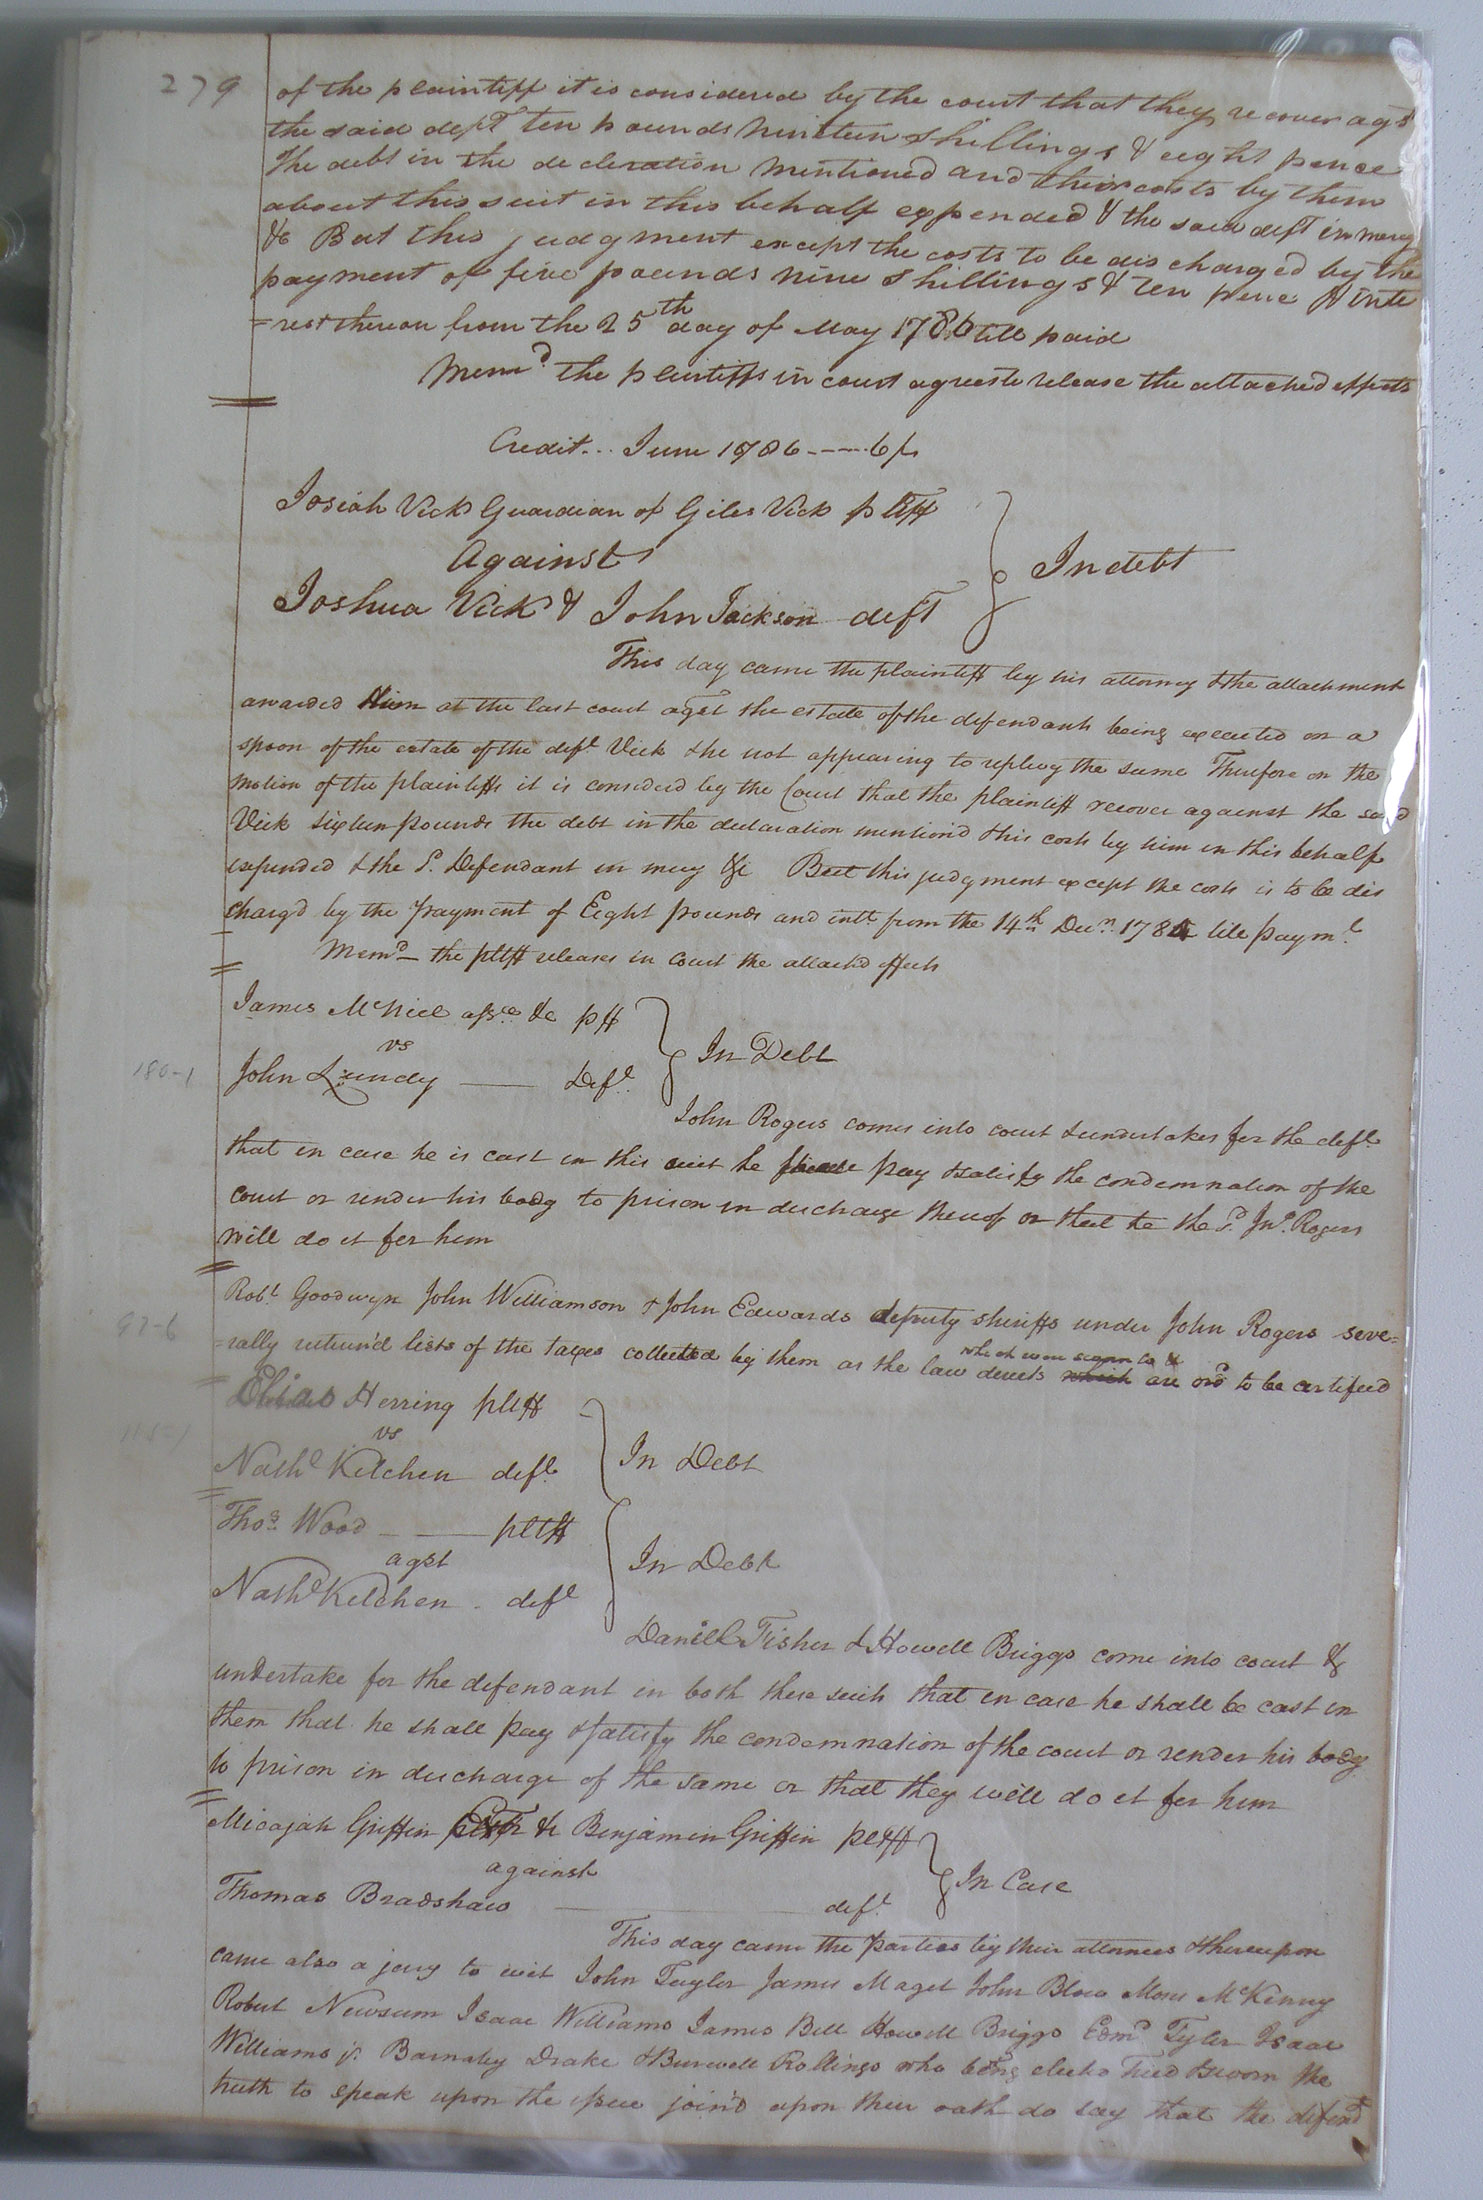 279
of the plaintiff it is considered by the court that they recover agt
the said deft ten pounds Nineteen shillings & eight pence
the debt in the decleration mentioned and their costs by them
about this suit in this behalf expended & the said deft in mercy
&c But this judgment except the costs to be discharged by the
payment of five pounds nine shillings & ten pence & inte
=rest thereon from the 25th day of May 1786 till paid
Memd the plaintiffs in court agree to release the attached effects
Credit... June 1786 ---- 6/
Josiah Vick Guardian of Giles Vick pltff
Against
In debt
Joshua Vick & John Jackson deft
This day came the plaintiff by his attorney & the attachment
awarded him at the last court agst the estate of the defendants being executed on a
spoon of the estate of the deft Vick & he not appearing to replevy the same Therefore on the
motion of the plaintiffs it is considerd by the Court that the plaintiff recover against the said
Vick sixteen pounds the debt in the declaration mention'd & his costs by him in this behalf
expended & the sd. Defendant in mercy &c But this judgment except the costs is to be dis
charg'd by the payment of Eight pounds and intt. from the 14th Decr. 1784 till paymt.
Memd — the pltff releases in Court the attach'd effects
James McNiel assee. &c pff
vs
In Debt
180-1
John Lundy —— Deft.
John Rogers comes into court & undertakes for the deft
that in case he is cast in this suit he shall pay & satisfy the condemnation of the
court or render his body to prison in discharge thereof or that he the sd. Jno. Rogers
will do it for him
Robt. Goodwyn John Williamson & John Edwards deputy sheriffs under John Rogers seve=
97-6
=rally return'd lists of the taxes collected by them as the law directs which are ord to be certifeed
which were sworn to &
Elias Herring pltff
vs
In Debt
Nathl Kitchen deft.
Thos. Wood — —— pltff
agst
In Debt
Nathl Kitchen . deft
Daniel Fisher & Howell Briggs come into court &
undertake for the defendant in both these suits that in case he shall be cast in
them that he shall pay & satisfy the condemnation of the court or render his body
to prison in discharge of the same or that they will do it for him
Micajah Griffin &c Benjamin Griffin pltff
against
In Case
Thomas Bradshaw —— deft.
This day came the parties by their attornies & thereupon
came also a jury to wit John Taylor James Maget John Blow Moses McKenny
Robert Newsum Isaac Williams James Bell Howell Briggs Edmd Tyler Isaac
Williams jr. Barnaby Drake & Burwell Rollings who being elected tried & sworn the
truth to speak upon the issue join'd upon their oath do say that the defendt